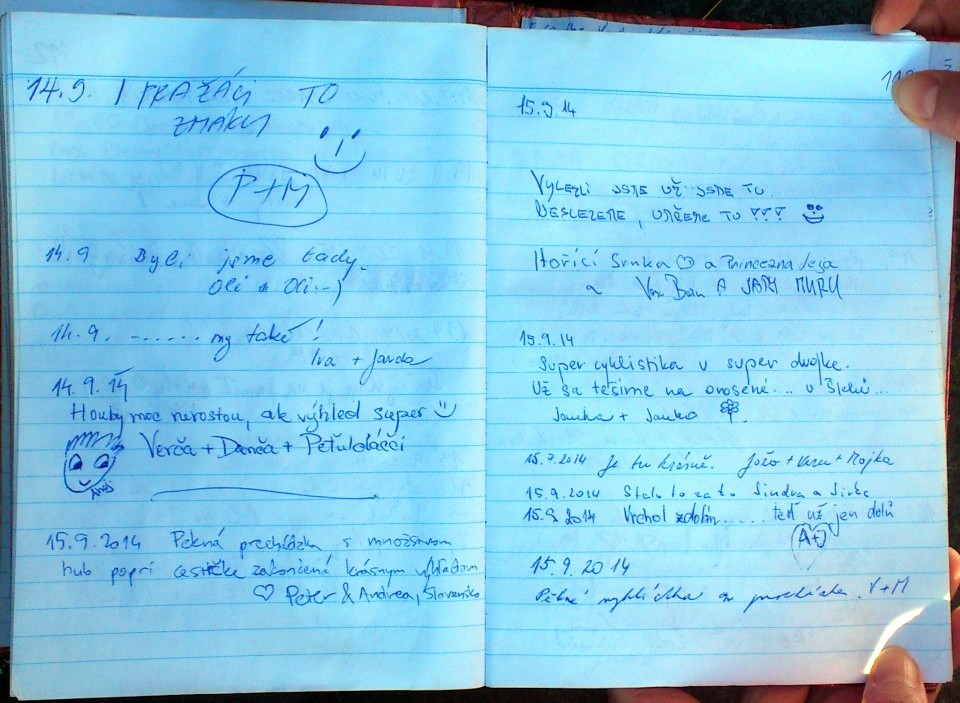 14.9. I PRAŽÁCI TO
ZMÁKLI
P+M
14.9 Byli jsme tady.
Oli a Oli :-)
14.9. ...... my také!
Iva + Jarda
14.9.14
Houby moc nerostou, ale výhled super
Verča + Danča + Peťuloláčci
15.9.2014 Pekná prechádzka s množstvom
hub popri cestičke zakončená krásnym výhľadom
Peter & Andrea, Slovensko
15.9.14
VYLEZLI JSME UŽ JSME TU
NESLEZEME, URČEME TU !!!
Hořící Srnka a Princezna
a A
15.9.14
Super cyklistika v super dvojke.
Už sa tešíme na orosené.... v
Janka + Janko
15.9.2014 Je tu krásně. Jožo + + Majka
15.9.2014 Stalo to za to Jindra a
15.9.2014 Vrchol zdolán...... teď už jen dolů
A+J
15.9.2014
Pěkná vyhlídka a procházka. + M